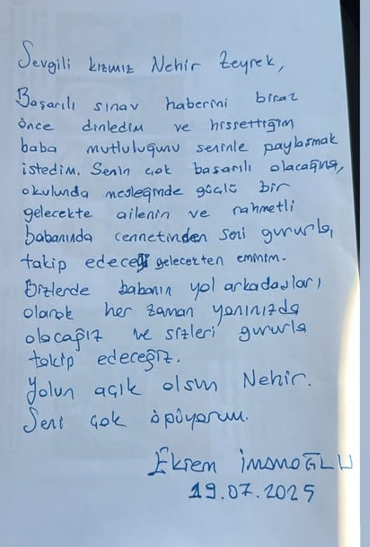 Sevgili kızımız Nehir Zeyrek,
Başarılı sınav haberini biraz
önce dinledim ve hissettiğim
baba mutluluğunu seninle paylaşmak
istedim. Senin çok başarılı olacağına,
okulunda mesleğinde güçlü bir
gelecekte ailenin ve rahmetli
babanında cennetinden seni gururla,
takip edeceği gelecekten eminim.
Bizlerde babanın yol arkadaşları
olarak her zaman yanınızda
olacağız ve sizleri gururla
takip edeceğiz.
Yolun açık olsun Nehir.
Seni çok öpüyorum.
Ekrem İmamoĞLU
19.07.2025